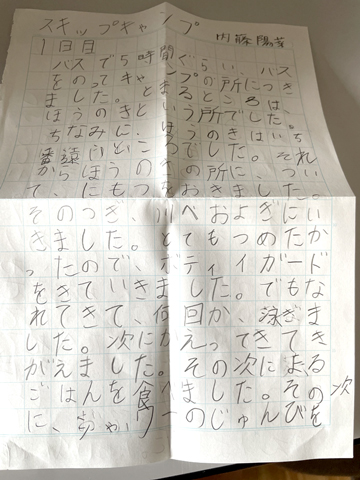 スキップキャンプ
内藤陽
1日目
バスで5時間ぐらい、バス
をのってキャンプの所につき
ました。とまるところは、
ほうのきという所でした。
ちなみに、ほうのきはいち
番遠いところでした。それ
からほうのきの所に、つい
て、にもつをおきました。
そのつぎ、川へおよぎにい
きました。とてもつめたか
ったので、ボディイガード
をきていきました。でもな
れてきて、何回か、泳ぎま
した。次にかえってきてき
がえました。その次による
ごはんを食べました。その次
に、のじゅんびを